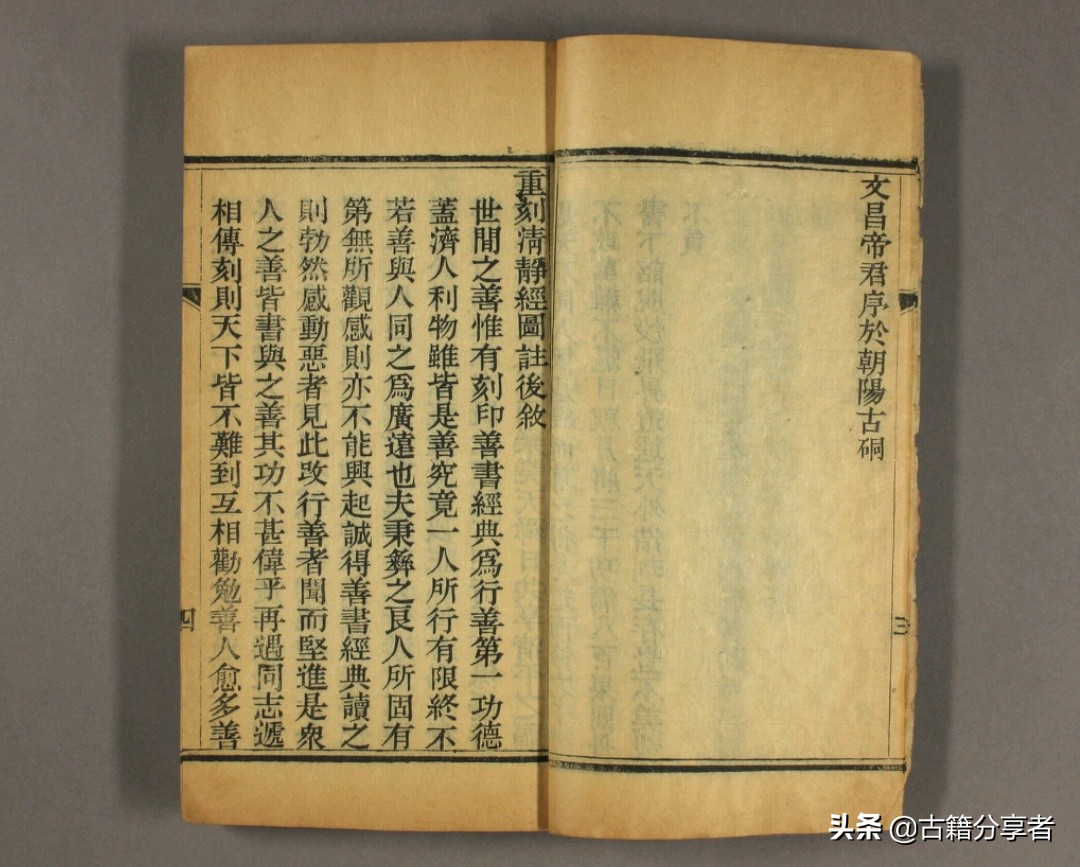 文昌帝君序於朝陽古硐
三
重刻清靜經圖註後敘
世間之善惟有刻印善書經典爲行善第一功德
蓋濟人利物雖皆是善究竟一人所行有限終不
若善與人同之爲廣遠也夫秉彝之良人所固有
第無所觀感則亦不能興起誠得善書經典讀之
則勃然感動惡者見此改行善者聞而堅進是衆
人之善皆書與之善其功不甚偉乎再遇同志遞
相傳刻則天下皆不難到互相勸勉善人愈多善
四
头条 @古籍分享者